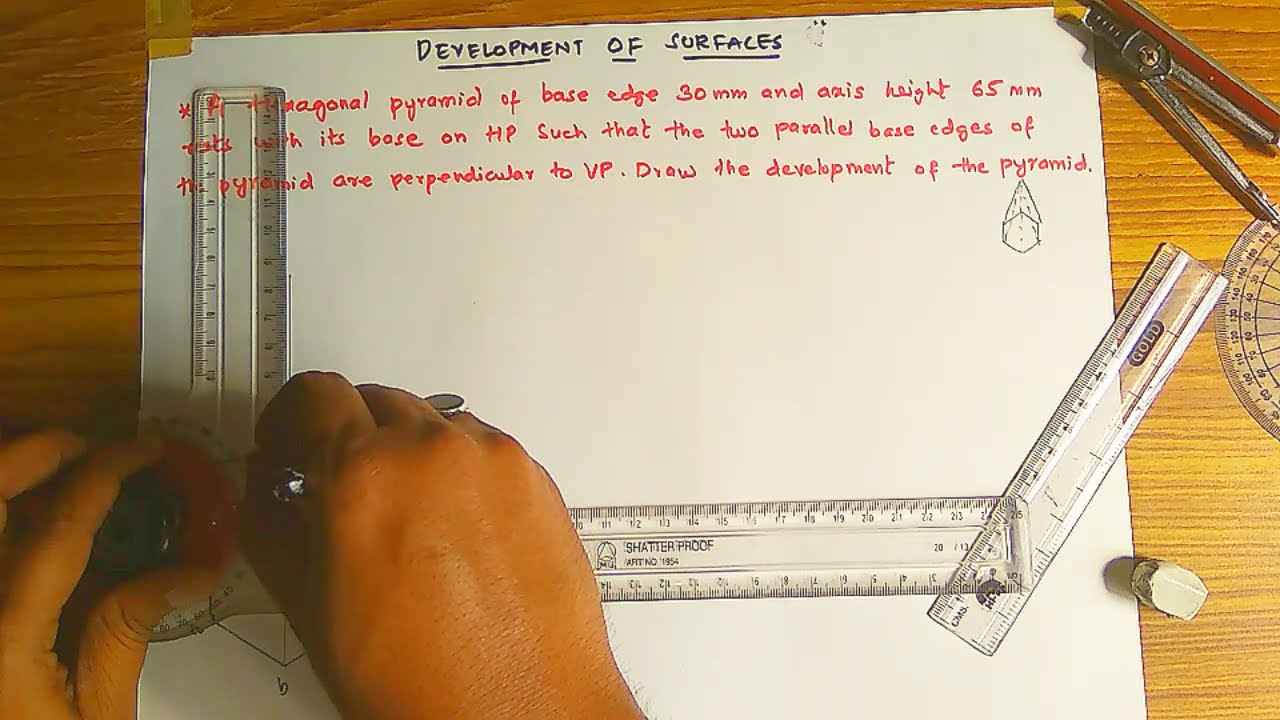 DEVELOPMENT OF SURFACES
* A Hexagonal pyramid of base edge 30mm and axis height 65mm
rests with its base on HP Such that the two parallel base edges of
the pyramid are perpendicular to VP. Draw the development of the pyramid.
GOLD
SHATTER PROOF
ART NO. 1954
20
CMS
b